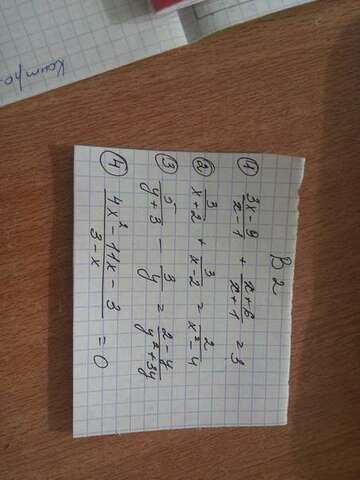 В 2
① (3x - 9)/(x - 1) + (x + 6)/(x + 1) = 3
② 3/(x + 2) + 3/(x - 2) = 2/(x² - 4)
③ 5/(y + 3) - 3/y = (2 - y)/(y² + 3y)
④ (4x² - 11x - 3)/(3 - x) = 0